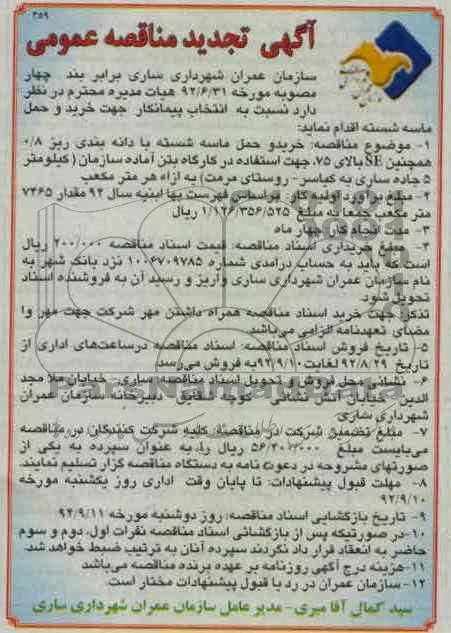 ۲۵۹
آگهی تجدید مناقصه عمومی
سازمان عمران شهرداری ساری برابر بند چهار
مصوبه مورخه ۹۲/۶/۳۱ هیات مدیره محترم در نظر
دارد نسبت به انتخاب پیمانکار جهت خرید و حمل
ماسه شسته اقدام نماید:
۱- موضوع مناقصه: خریدو حمل ماسه شسته با دانه بندی ریز ۰/۸
همچنین SE بالای ۷۵، جهت استفاده در کارگاه بتن آماده سازمان ( کیلومتر
۵ جاده ساری به کیاسر- روستای مرمت) به ازاء هر متر مکعب
۲- مبلغ برآورد اولیه کار: براساس فهرست بها ابنیه سال ۹۲ مقدار ۷۴۶۵
متر مکعب جمعا به مبلغ ۱/۱۲۶/۳۵۶/۵۲۵ ریال
۳- مدت انجام کار: چهار ماه
۴- مبلغ خریداری اسناد مناقصه: قیمت اسناد مناقصه ۲۰۰/۰۰۰ ریال
است که باید به حساب درآمدی شماره ۱۰۰۶۷۰۹۷۸۵ نزد بانک شهر به
نام سازمان عمران شهرداری ساری واریز و رسید آن به فروشنده اسناد
تحویل شود.
تذکر: جهت خرید اسناد مناقصه همراه داشتن مهر شرکت جهت مهر وا
مضای تعهدنامه الزامی می‌باشد.
۵- تاریخ فروش اسناد مناقصه: اسناد مناقصه درساعت‌های اداری از
تاریخ ۹۲/۸/۲۹ لغایت ۹۲/۹/۱۰ به فروش می‌رسد.
۶- نشانی محل فروش و تحویل اسناد مناقصه: ساری- خیابان ملا مجد
الدین- خیابان آتش نشانی- کوچه شقایق- دبیرخانه سازمان عمران
شهرداری ساری
۷- مبلغ تضمین شرکت در مناقصه: کلیه شرکت کنندگان در مناقصه
می‌بایست مبلغ ۵۶/۳۰۰/۰۰۰ ریال را، به عنوان سپرده به یکی از
صورتهای مشروحه در دعوت نامه به دستگاه مناقصه گزار تسلیم نمایند.
۸- مهلت قبول پیشنهادات: تا پایان وقت اداری روز یکشنبه مورخه
۹۲/۹/۱۰
۹- تاریخ بازگشایی اسناد مناقصه: روز دوشنبه مورخه ۹۲/۹/۱۱
۱۰-در صورتیکه پس از بازگشائی اسناد مناقصه نفرات اول، دوم و سوم
حاضر به انعقاد قرار داد نگردند سپرده آنان به ترتیب ضبط خواهد شد.
۱۱-هزینه درج آگهی روزنامه بر عهده برنده مناقصه می‌باشد
۱۲-سازمان عمران در رد یا قبول پیشنهادات مختار است.
سید کمال آقا میری - مدیر عامل سازمان عمران شهرداری ساری